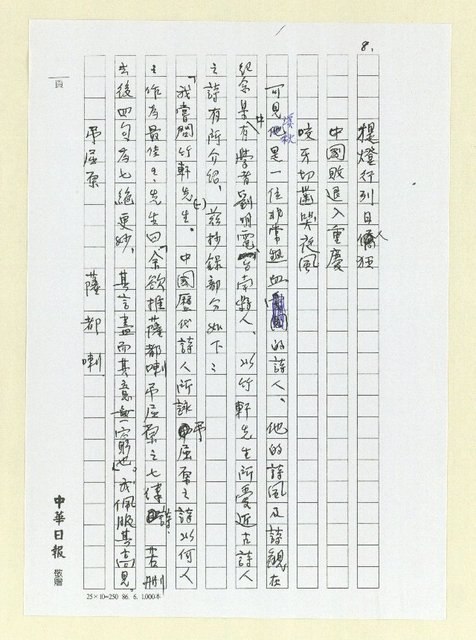 8.
提燈行列日僑狂
中國敗退入重慶
咬牙切齒哭夜風
可見槐秋他是一位非常熱血的詩人、他的詩風及詩觀在
紀念集中有學者劉明電台南縣人、以竹軒先生所愛近古詩人
之詩有所介紹、茲抄錄部分如下：
「我嘗問竹軒先生、中國歷代詩人所詠弔屈原之詩以何人
之作為最佳、先生曰「余欲推薩都喇弔屈原之七律詩、若刪
去後四句為七絕更妙、其言盡而其意無窮也。」我佩服其高見。
弔屈原 薩都喇
頁
中華日報 敬贈
25×10=250 86. 6. 1,000本